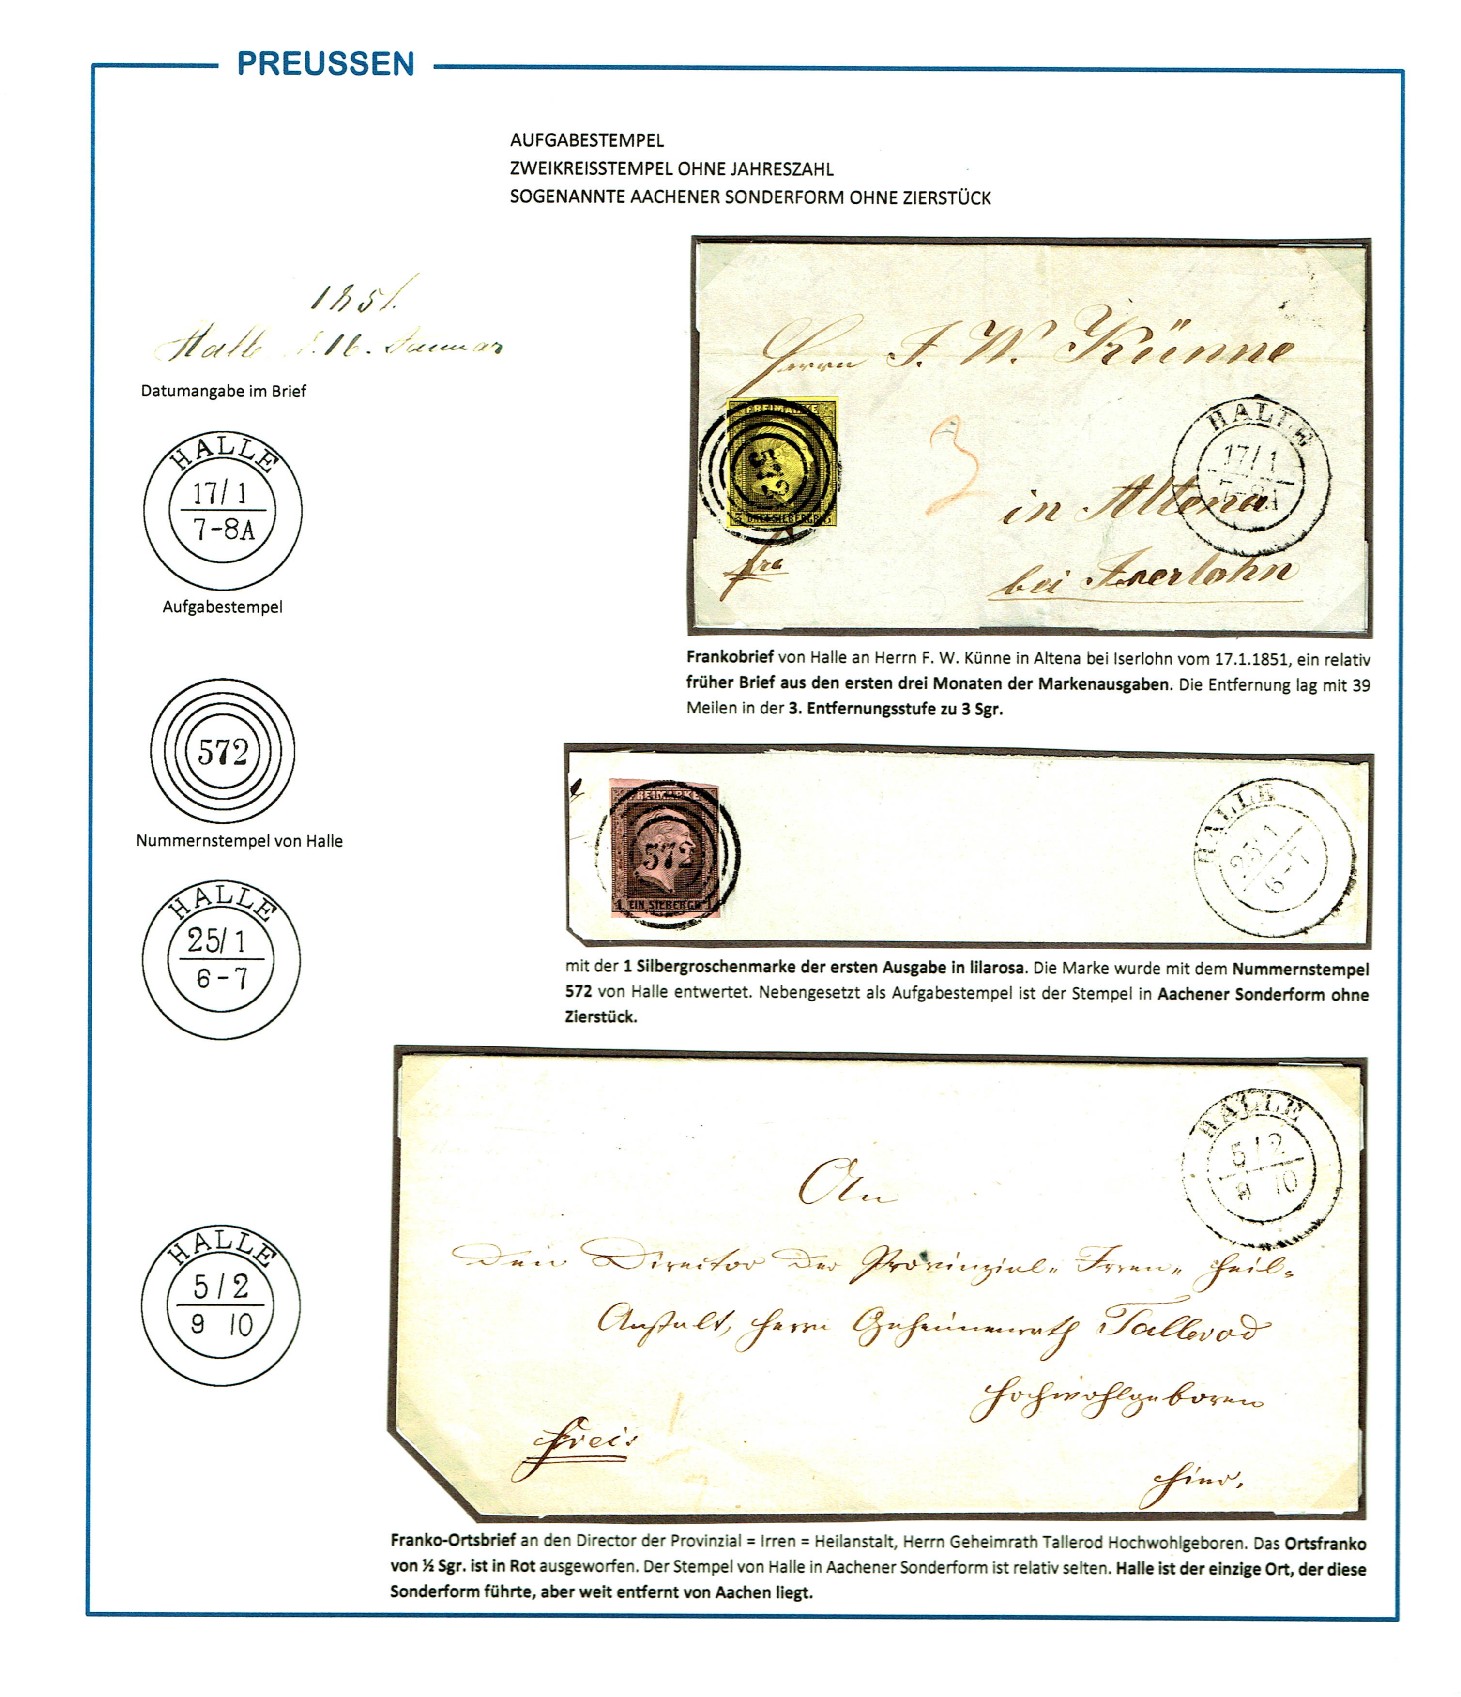 PREUSSEN
AUFGABESTEMPEL
ZWEIKREISSTEMPEL OHNE JAHRESZAHL
SOGENANNTE AACHENER SONDERFORM OHNE ZIERSTÜCK
1851.
Halle d. 16. Januar
Datumangabe im Brief
HALLE
17/1
7-8A
Aufgabestempel
Herrn F. W. Künne
FREIMARKE
572
3 DREI SILBERGR. 3
3
HALLE
17/1
7-8A
in Altena
fro
bei Iserlohn
Frankobrief von Halle an Herrn F. W. Künne in Altena bei Iserlohn vom 17.1.1851, ein relativ
früher Brief aus den ersten drei Monaten der Markenausgaben. Die Entfernung lag mit 39
Meilen in der 3. Entfernungsstufe zu 3 Sgr.
572
Nummernstempel von Halle
FREIMARKE
572
1 EIN SILBERGR. 1
HALLE
25/1
6-7
HALLE
25/1
6-7
mit der 1 Silbergroschenmarke der ersten Ausgabe in lilarosa. Die Marke wurde mit dem Nummernstempel
572 von Halle entwertet. Nebengesetzt als Aufgabestempel ist der Stempel in Aachener Sonderform ohne
Zierstück.
HALLE
5/2
9 10
HALLE
5/2
9 10
An
den Director der Provinzial= Irren= Heil=
Anstalt, Herrn Geheimenrath Tallerod
Hochwohlgeboren
frei.
hier.
Franko-Ortsbrief an den Director der Provinzial = Irren = Heilanstalt, Herrn Geheimrath Tallerod Hochwohlgeboren. Das Ortsfranko
von ½ Sgr. ist in Rot ausgeworfen. Der Stempel von Halle in Aachener Sonderform ist relativ selten. Halle ist der einzige Ort, der diese
Sonderform führte, aber weit entfernt von Aachen liegt.